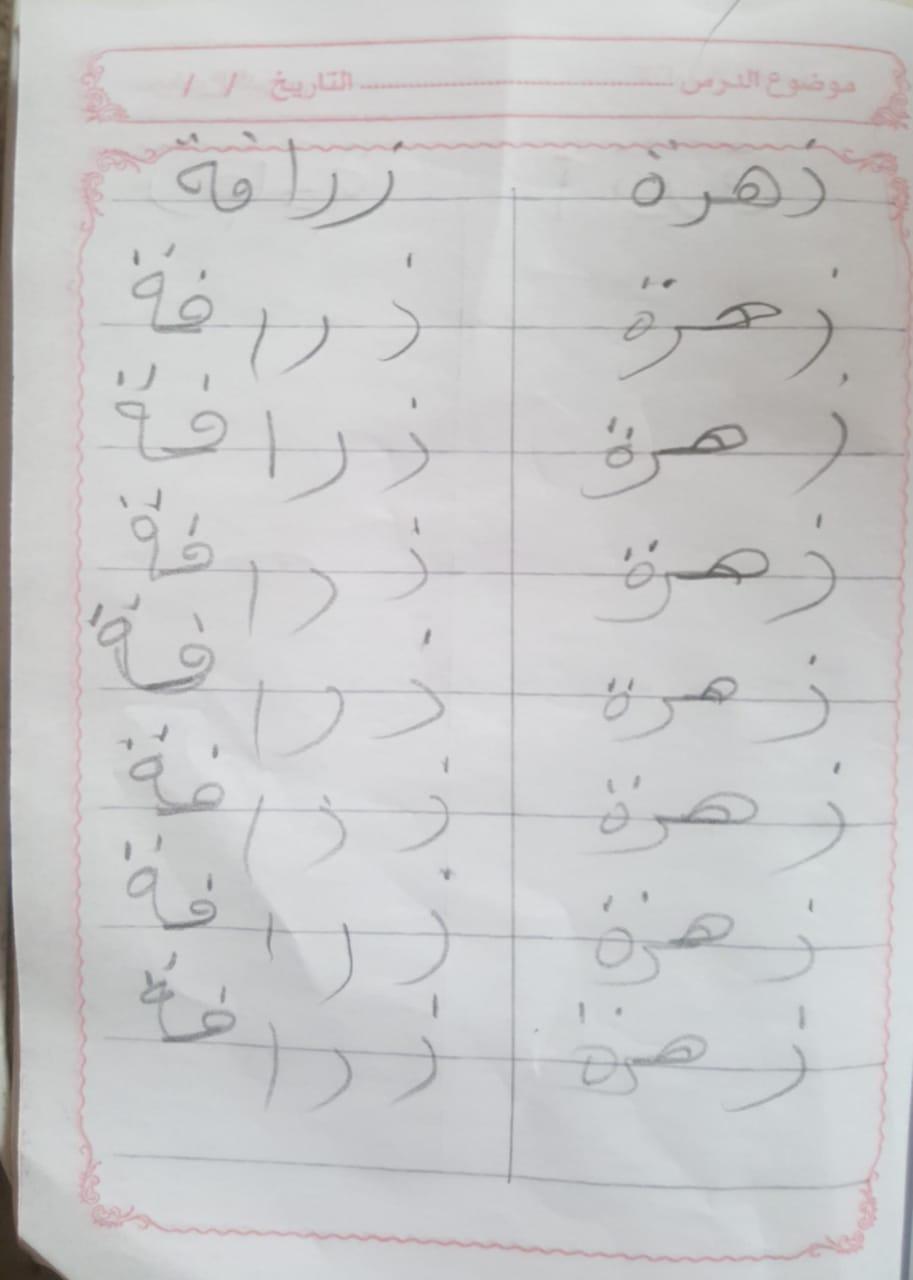 موضوع الدرس ........................ التاريخ / /
زهرة زرافة
زهرة زرافة
زهرة زرافة
زهرة زرافة
زهرة زرافة
زهرة زرافة
زهرة زرافة
زهرة زرافة